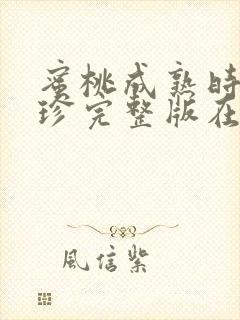 蜜桃成熟时
珍完整版在
風信紫